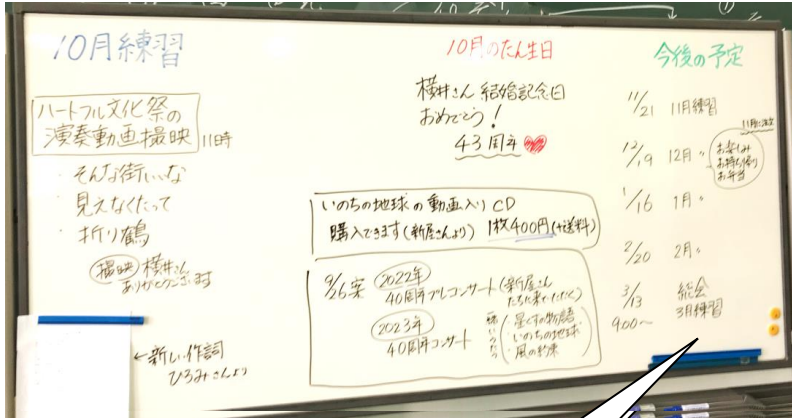 10月練習
ハートフル文化祭の
演奏動画撮映 11時
・そんな街いいな
・見えなくたって
・折り鶴
撮映 横井さん
ありがとうございます
←新しい作詞
ひろみさんより
10月のたん生日
横井さん 結婚記念日
おめでとう!
43周年
いのちの地球の動画入りCD
購入できます(新屋さんより) 1枚400円(+送料)
9/26案 2022年
40周年プレコンサート(新屋さん
たちに来ていただく)
2023年
40周年コンサート
星くずの物語
いのちの地球
風の約束
今後の予定
11/21 11月練習
12/19 12月〃
お楽しみ
お持ち帰り
お弁当
1/16 1月〃
2/20 2月〃
3/13 総会
3月練習
9:00〜